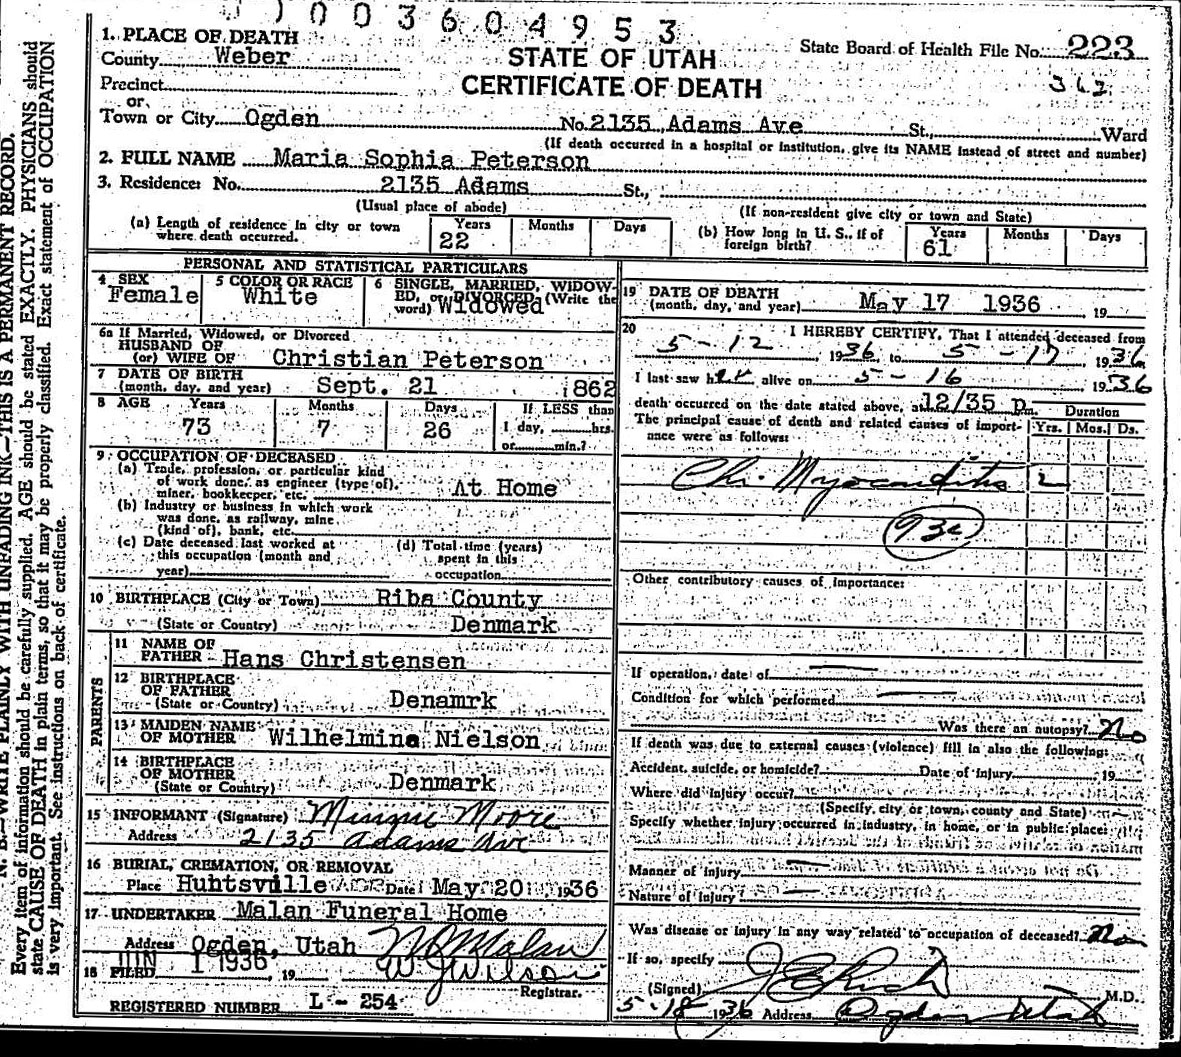 0 0 3 6 0 4 9 5 3
1. PLACE OF DEATH
County Weber
STATE OF UTAH
CERTIFICATE OF DEATH
State Board of Health File No. 223
362
Precinct
or
Town or City Ogden No. 2135 Adams Ave St., Ward
(If death occurred in a hospital or institution, give its NAME instead of street and number)
2. FULL NAME Maria Sophia Peterson
3. Residence: No. 2135 Adams St.,
(Usual place of abode)
(If non-resident give city or town and State)
(a) Length of residence in city or town where death occurred. Years 22 Months Days
(b) How long in U. S., if of foreign birth? Years 61 Months Days
PERSONAL AND STATISTICAL PARTICULARS
4 SEX Female
5 COLOR OR RACE White
6 SINGLE, MARRIED, WIDOWED, or DIVORCED (Write the word) Widowed
6a If Married, Widowed, or Divorced
HUSBAND OF
(or) WIFE OF Christian Peterson
7 DATE OF BIRTH
(month, day, and year) Sept. 21 1862
8 AGE Years 73 Months 7 Days 26 If LESS than 1 day, hrs. or min.?
9 OCCUPATION OF DECEASED
(a) Trade, profession, or particular kind
of work done, as engineer (type of),
miner, bookkeeper, etc. At Home
(b) Industry or business in which work
was done, as railway, mine
(kind of), bank, etc.
(c) Date deceased last worked at
this occupation (month and
year)
(d) Total time (years)
spent in this
occupation
10 BIRTHPLACE (City or Town) Riba County
(State or Country) Denmark
PARENTS
11 NAME OF
FATHER Hans Christensen
12 BIRTHPLACE
OF FATHER
(State or Country) Denamrk
13 MAIDEN NAME
OF MOTHER Wilhelmina Nielson
14 BIRTHPLACE
OF MOTHER
(State or Country) Denmark
15 INFORMANT (Signature) Minnie Moore
Address 2135 Adams Ave
16 BURIAL, CREMATION, OR REMOVAL
Place Huhtsville Date May 20 1936
17 UNDERTAKER Malan Funeral Home
Address Ogden, Utah
18 FILED JUN 1 1936, 19 W J Wilson
Registrar.
REGISTERED NUMBER L - 254
19 DATE OF DEATH
(month, day, and year) May 17 1936 19
20 I HEREBY CERTIFY, That I attended deceased from
5 - 12 1936 to 5 - 17 1936
I last saw her alive on 5 - 16 1936
death occurred on the date stated above, at 12/35 p m. Duration
The principal cause of death and related causes of importance were as follows: Yrs. Mos. Ds.
Chr. Myocarditis 2
93c
Other contributory causes of importance:
If operation, date of
Condition for which performed
Was there an autopsy? No
If death was due to external causes (violence) fill in also the following:
Accident, suicide, or homicide? Date of injury 19
Where did injury occur?
(Specify city or town, county and State)
Specify whether injury occurred in industry, in home, or in public place:
Manner of injury
Nature of injury
Was disease or injury in any way related to occupation of deceased? No
If so, specify
(Signed) M.D.
5-18-1936 Address Ogden Utah
N. B.—WRITE PLAINLY WITH UNFADING INK—THIS IS A PERMANENT RECORD.
Every item of information should be carefully supplied. AGE should be stated EXACTLY. PHYSICIANS should
state CAUSE OF DEATH in plain terms, so that it may be properly classified. Exact statement of OCCUPATION
is very important. See instructions on back of certificate.